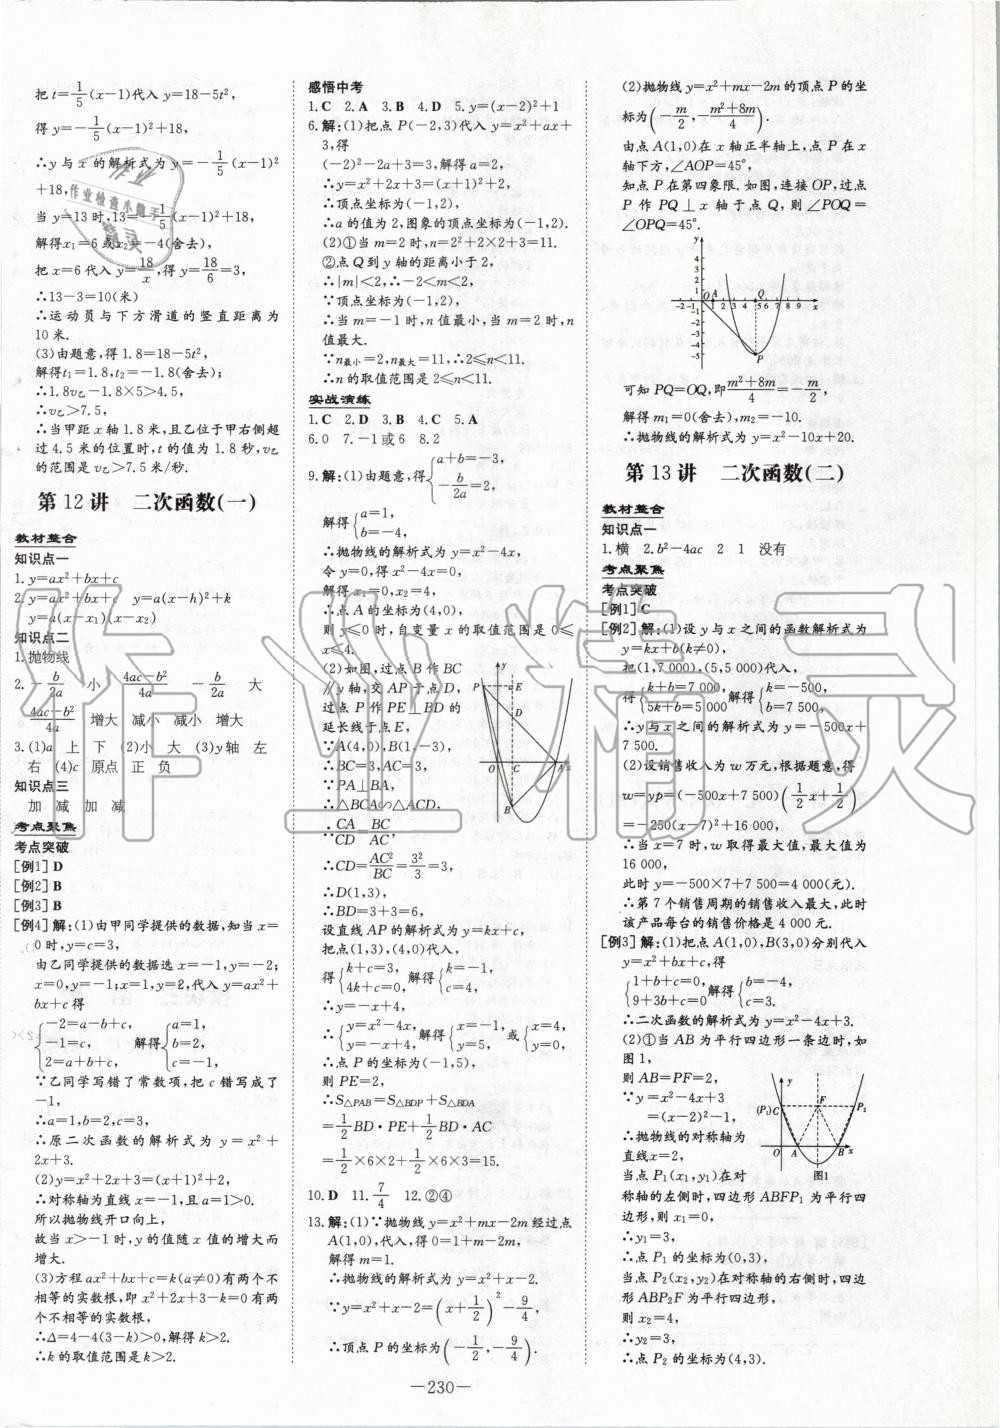 把t=1/5(x-1)代入y=18-5t²,
得y=-1/5(x-1)²+18,
∴y与x的解析式为y=-1/5(x-1)²
+18,
当y=13时,13=-1/5(x-1)²+18,
解得x₁=6或x₂=-4(舍去);
把x=6代入y=18/x,得y=18/6=3,
∴13-3=10(米)
∴运动员与下方滑道的竖直距离为
10米.
(3)由题意,得1.8=18-5t²,
解得t₁=1.8,t₂=-1.8(舍去);
∴1.8v乙-1.8×5>4.5,
∴v乙>7.5,
∴当甲距x轴1.8米,且乙位于甲右侧超
过4.5米的位置时,t的值为1.8秒,v乙
的范围是v乙>7.5米/秒.
第12讲 二次函数(一)
教材整合
知识点一
1.y=ax²+bx+c
2.y=ax²+bx+c y=a(x-h)²+k
y=a(x-x₁)(x-x₂)
知识点二
1.抛物线
2.-b/2a 小 (4ac-b²)/4a -b/2a 大
(4ac-b²)/4a 增大 减小 减小 增大
3.(1)a 上 下 (2)小 大 (3)y轴 左
右 (4)c 原点 正 负
知识点三
加 减 加 减
考点聚焦
考点突破
[例1]D
[例2]B
[例3]B
[例4]解:(1)由甲同学提供的数据,知当x=
0时,y=c=3,
由乙同学提供的数据选x=-1,y=-2;
x=0,y=-1;x=1,y=2,代入y=ax²+
bx+c得
{-2=a-b+c, -1=c, 2=a+b+c, 解得{a=1, b=2, c=-1.
∵乙同学写错了常数项,把c错写成了
-1,
∴a=1,b=2,c=3,
∴原二次函数的解析式为y=x²+
2x+3.
(2)y=x²+2x+3=(x+1)²+2,
∴对称轴为直线x=-1,且a=1>0.
所以抛物线开口向上,
故当x>-1时,y的值随x值的增大而
增大.
(3)方程ax²+bx+c=k(a≠0)有两个不
相等的实数根,即x²+2x+3-k=0有两
个不相等的实数根,
∴Δ=4-4(3-k)>0,解得k>2.
∴k的取值范围是k>2.
感悟中考
1.C 2.A 3.B 4.D 5.y=(x-2)²+1
6.解:(1)把点P(-2,3)代入y=x²+ax+
3,得
(-2)²-2a+3=3,解得a=2,
∴y=x²+2x+3=(x+1)²+2,
∴顶点坐标为(-1,2),
∴a的值为2,图象的顶点坐标为(-1,2).
(2)①当m=2时,n=2²+2×2+3=11.
②点Q到y轴的距离小于2,
∴|m|<2,∴-2<m<2,
∵顶点坐标为(-1,2),
∴当m=-1时,n值最小,当m=2时,n
值最大.
∵n最小=2,n最大=11,∴2≤n<11.
∴n的取值范围是2≤n<11.
实战演练
1.C 2.D 3.B 4.C 5.A
6.0 7.-1或6 8.2
9.解:(1)由题意,得{a+b=-3, -b/2a=2,
解得{a=1, b=-4,
∴抛物线的解析式为y=x²-4x,
令y=0,得x²-4x=0,
解得x₁=0,x₂=4,
∴点A的坐标为(4,0),
则y≤0时,自变量x的取值范围是0≤
x≤4.
(2)如图,过点B作BC
∥y轴,交AP于点D,
过点P作PE⊥BD的
延长线于点E,
∵A(4,0),B(1,-3),
∴BC=3,AC=3,
∵PA⊥BA,
∴△BCA∽△ACD,
∴CA/CD=BC/AC,
∴CD=AC²/BC=3²/3=3,
∴D(1,3),
∴BD=3+3=6,
设直线AP的解析式为y=kx+c,
把点(1,3),(4,0)代入,
得{k+c=3, 4k+c=0, 解得{k=-1, c=4,
∴y=-x+4,
∴{y=x²-4x, y=-x+4, 解得{x=-1, y=5, 或{x=4, y=0,
∴点P的坐标为(-1,5),
则PE=2,
∴S△PAB=S△BDP+S△BDA
=1/2BD·PE+1/2BD·AC
=1/2×6×2+1/2×6×3=15.
10.D 11.7/4 12.②④
13.解:(1)∵抛物线y=x²+mx-2m经过点
A(1,0),代入,得0=1+m-2m,
解得m=1.
∴抛物线的解析式为y=x²+x-2.
∵y=x²+x-2=(x+1/2)²-9/4,
∴顶点P的坐标为(-1/2,-9/4).
y
P
E
D
O
C
A
x
B
(2)抛物线y=x²+mx-2m的顶点P的坐
标为(-m/2,-(m²+8m)/4).
由点A(1,0)在x轴正半轴上,点P在x
轴下方,∠AOP=45°,
知点P在第四象限.如图,连接OP,过点
P作PQ⊥x轴于点Q,则∠POQ=
∠OPQ=45°.
y
4
3
2
1
-2 -1 O A 1 2 3 4 5 6 7 8 9 x
Q
-1
-2
-3
-4
-5
P
可知PQ=OQ,即(m²+8m)/4=-m/2,
解得m₁=0(舍去),m₂=-10.
∴抛物线的解析式为y=x²-10x+20.
第13讲 二次函数(二)
教材整合
知识点一
1.横 2.b²-4ac 2 1 没有
考点聚焦
考点突破
[例1]C
[例2]解:(1)设y与x之间的函数解析式为
y=kx+b(k≠0),
把(1,7 000),(5,5 000)代入,
得{k+b=7 000, 5k+b=5 000 解得{k=-500, b=7 500,
∴y与x之间的解析式为y=-500x+
7 500.
(2)设销售收入为w万元,根据题意,得
w=yp=(-500x+7500)(1/2x+1/2)
=-250(x-7)²+16 000,
∴当x=7时,w取得最大值,最大值为
16 000,
此时y=-500×7+7 500=4 000(元).
∴第7个销售周期的销售收入最大,此时
该产品每台的销售价格是4 000元.
[例3]解:(1)把点A(1,0),B(3,0)分别代入
y=x²+bx+c,得
{1+b+c=0, 9+3b+c=0 解得{b=-4, c=3.
∴二次函数的解析式为y=x²-4x+3.
(2)①当AB为平行四边形一条边时,如
图1,
则AB=PF=2,
∵y=x²-4x+3
=(x-2)²-1,
∴抛物线的对称轴为
直线x=2,
当点P₁(x₁,y₁)在对
称轴的左侧时,四边形ABFP₁为平行四
边形,则x₁=0,
∴y₁=3,
∴点P₁的坐标为(0,3),
当点P₂(x₂,y₂)在对称轴的右侧时,四边
形ABP₂F为平行四边形,
则x₂=4,
∴y₂=3,
∴点P₂的坐标为(4,3).
y
(P₁)C
F
P₂
O
A
B
x
图1
—230—
作业精灵
作业
作业检查小助手
精灵